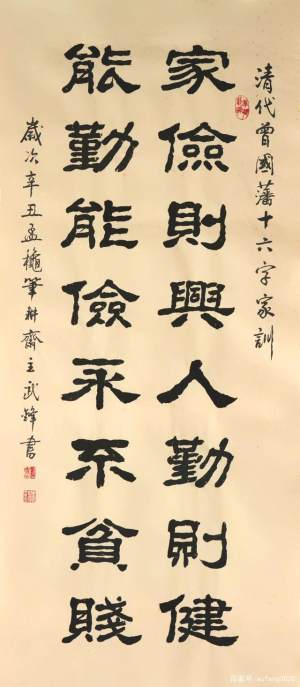 清代曾國藩十六字家訓
家儉則興人勤則健
能勤能儉永不貧賤
歲次辛丑孟穐筆耕齋主武鋒書